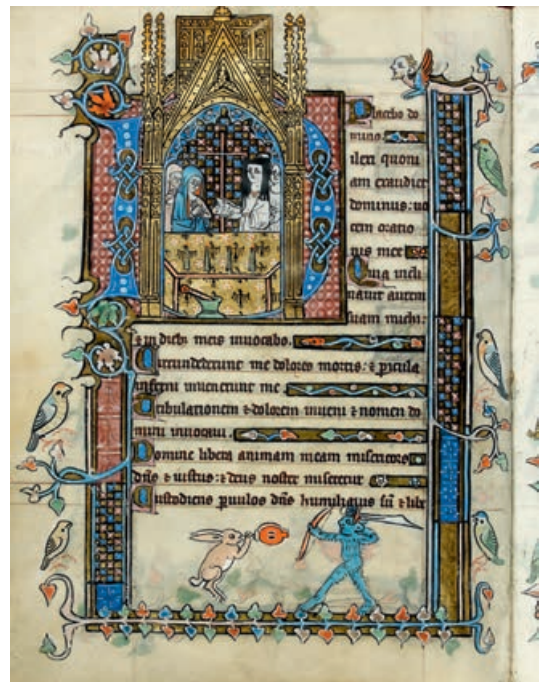 Placebo do
mino.
Dilexi quoni
am exaudiet
dominus: uo
cem oratio
nis mee
Quia incli
nauit aurem
suam michi:
& in dieb; meis inuocabo.
Circundederunt me dolores mortis: & picula
inferni inuenerunt me
Tribulationem & dolorem inueni & nomen do
mini inuocaui.
O Domine libera animam meam misericors
dñs & iustus: & deus noster miseretur
Custodiens puulos dñs humiliatus sū & libe